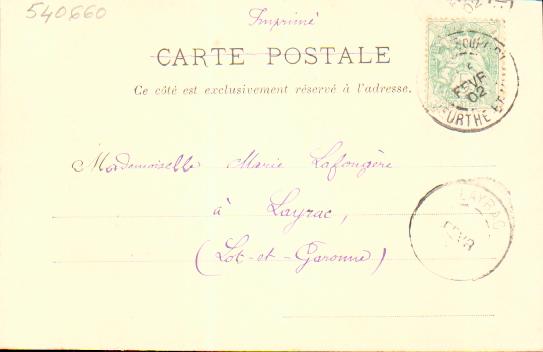 540660
Imprimé
CARTE POSTALE
Ce côté est exclusivement réservé à l'adresse.
FEVR
02
MEURTHE ET
Mademoiselle Marie Lafougère
à Layrac,
(Lot-et-Garonne)
LAYRAC
FEVR